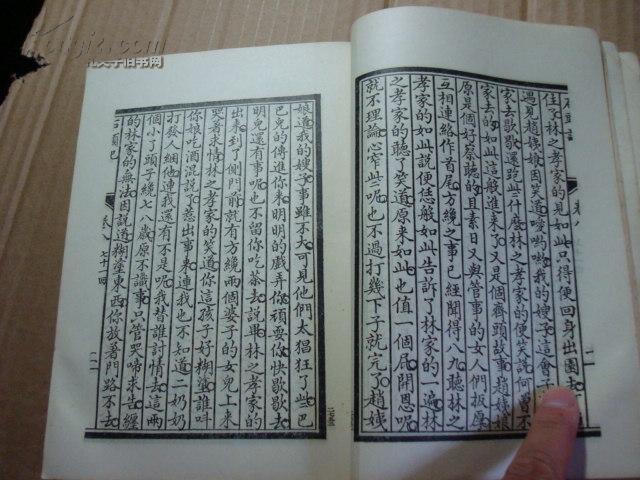 石頭記
卷八
住了林之孝家的見如此只得便回身出園去
遇見趙姨娘因笑道嗳喲喲我的嫂子這會子
家去歇歇還跑些什麼林之孝家的便笑說何曾不
家去的如此這般進來了又是個齊頭故事趙姨娘
原是個好察聽的且素日又與管事的女人們扳厚
互相連絡作首尾方纔之事已經聞得八九聽林之
孝家的如此說便恁般如此告訴了林家的一遍林
之孝家的聽了笑道原來如此也值一個屁開恩呢
就不理論心窄些呢也不過打幾下子就完了趙姨
娘道我的嫂子事雖不大可見他們太猖狂了些巴
巴兒的傳進你來明明的戲弄你頑耍你快歇歇去
明兒還有事呢也不留你吃茶去說畢林之孝家的
出來到了側門前就有方纔兩個婆子的女兒上來
哭着求情林之孝家的笑道你這孩子好糊塗誰叫
你娘吃酒混說了惹出事來連我也不知道二奶奶
打發人綑他連我還有不是呢我替誰討情去這兩
個小丫頭子纔七八歲原不識事只管哭啼求告纏
的林家的無法因説道糊塗東西你放着門路不去
石頭記
卷八 七十一回